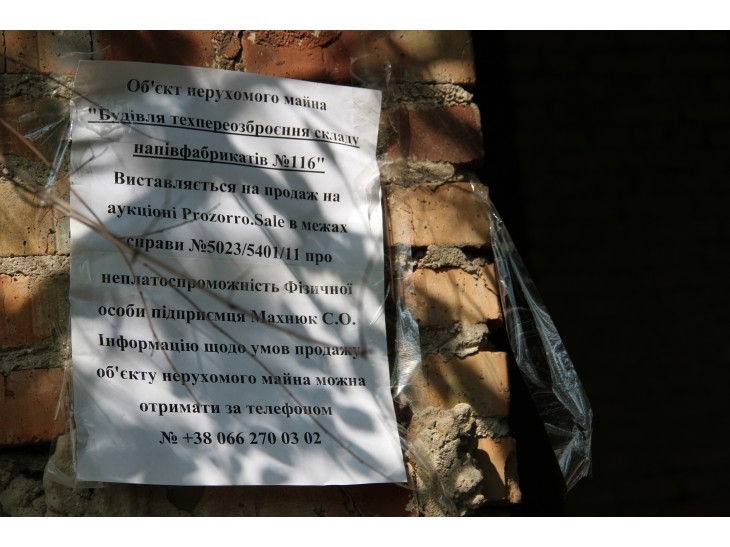 Об'єкт нерухомого майна
"Будівля техпереозброєння складу
напівфабрикатів №116"
Виставляється на продаж на
аукціоні Prozorro.Sale в межах
справи №5023/5401/11 про
неплатоспроможність Фізичної
особи підприємця Махнюк С.О.
Інформацію щодо умов продажу
об'єкту нерухомого майна можна
отримати за телефоном
№ +38 066 270 03 02